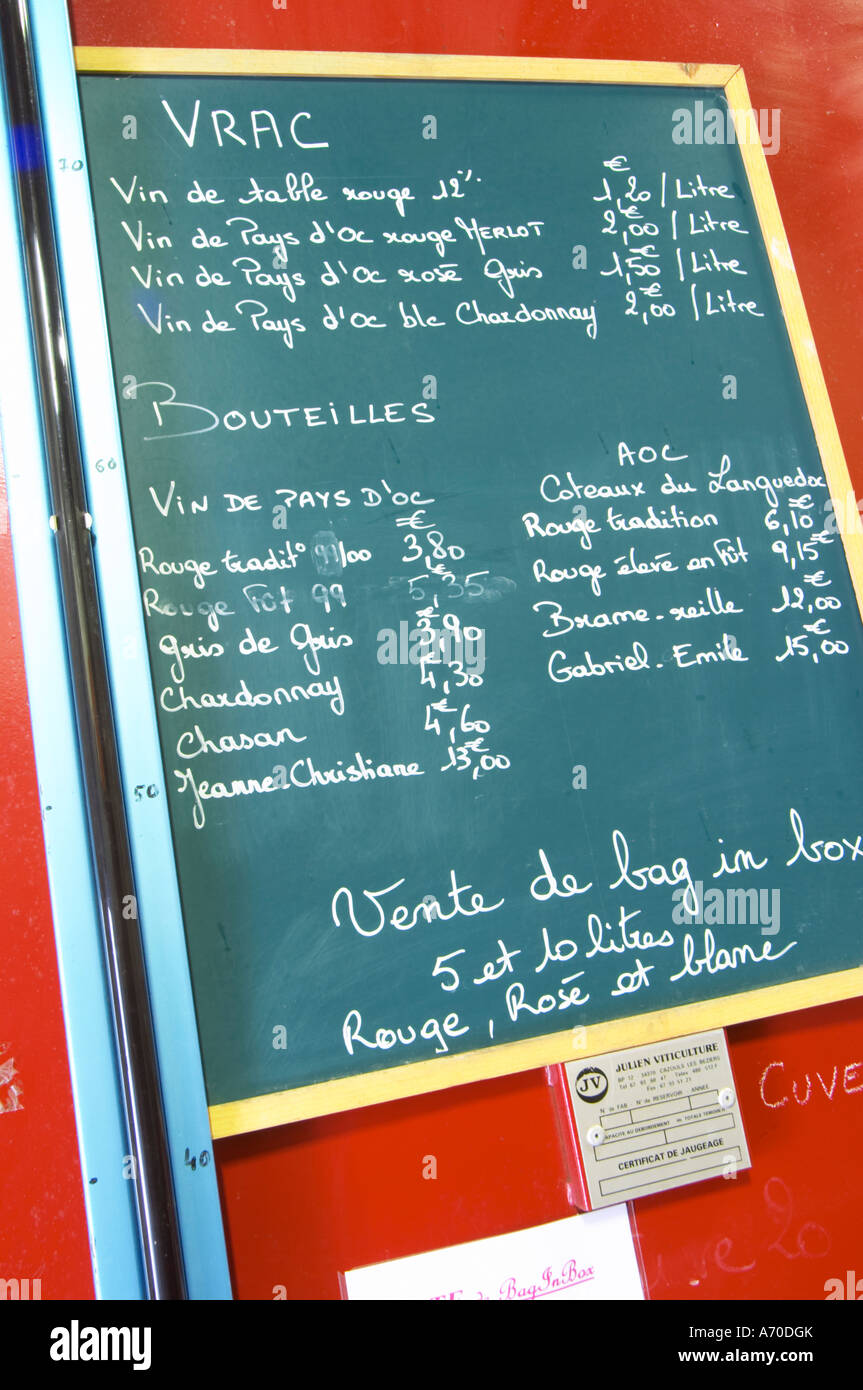 VRAC
€
Vin de table rouge 12% 1,20 / Litre
Vin de Pays d'Oc rouge MERLOT 2,00€ / Litre
Vin de Pays d'Oc rosé Gris 1,50€ / Litre
Vin de Pays d'Oc blc Chardonnay 2,00€ / Litre
BOUTEILLES
VIN DE PAYS D'OC
€
Rouge tradit° 99/00 3,80
Rouge Fût 99 5,35
Gris de Gris 3,90€
Chardonnay 4,30
Chasan 4,60€
Jeanne-Christiane 13,00€
AOC
Coteaux du Languedoc
Rouge tradition 6,10€
Rouge élevé en Fût 9,15€
Brame-reille 12,00€
Gabriel-Emile 15,00€
Vente de bag in box
5 et 10 litres
Rouge, Rosé et blanc
70
60
50
40
JV
JULIEN VITICULTURE
BP 12 34370 CAZOULS LES BEZIERS
N° de FAB N° de RESERVOIR ANNÉE
CAPACITE AU DEBORDEMENT
CERTIFICAT DE JAUGEAGE
CUVE
20
BagInBox
alamy
Image ID: A70DGK
www.alamy.com